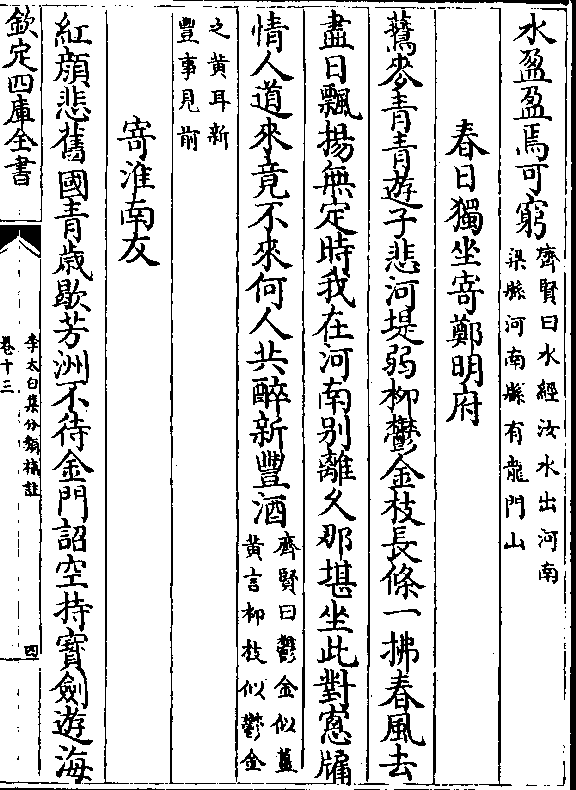 水盈盈焉可窮齊賢曰水經汝水出河南
梁縣河南縣有龍門山
春日獨坐寄鄭明府
鷰麥青青遊子悲河堤弱柳鬱金枝長條一拂春風去
盡日飄揚無定時我在河南别離久那堪坐此對窓牖
情人道來竟不來何人共醉新豐酒齊賢曰鬱金似薑
黄言柳枝似鬱金
之黄耳新
豐事見前
寄淮南友
紅顔悲舊國青歳歇芳洲不待金門詔空持寳劍遊海
欽定四庫全書
李太白集分類補註
卷十三
四